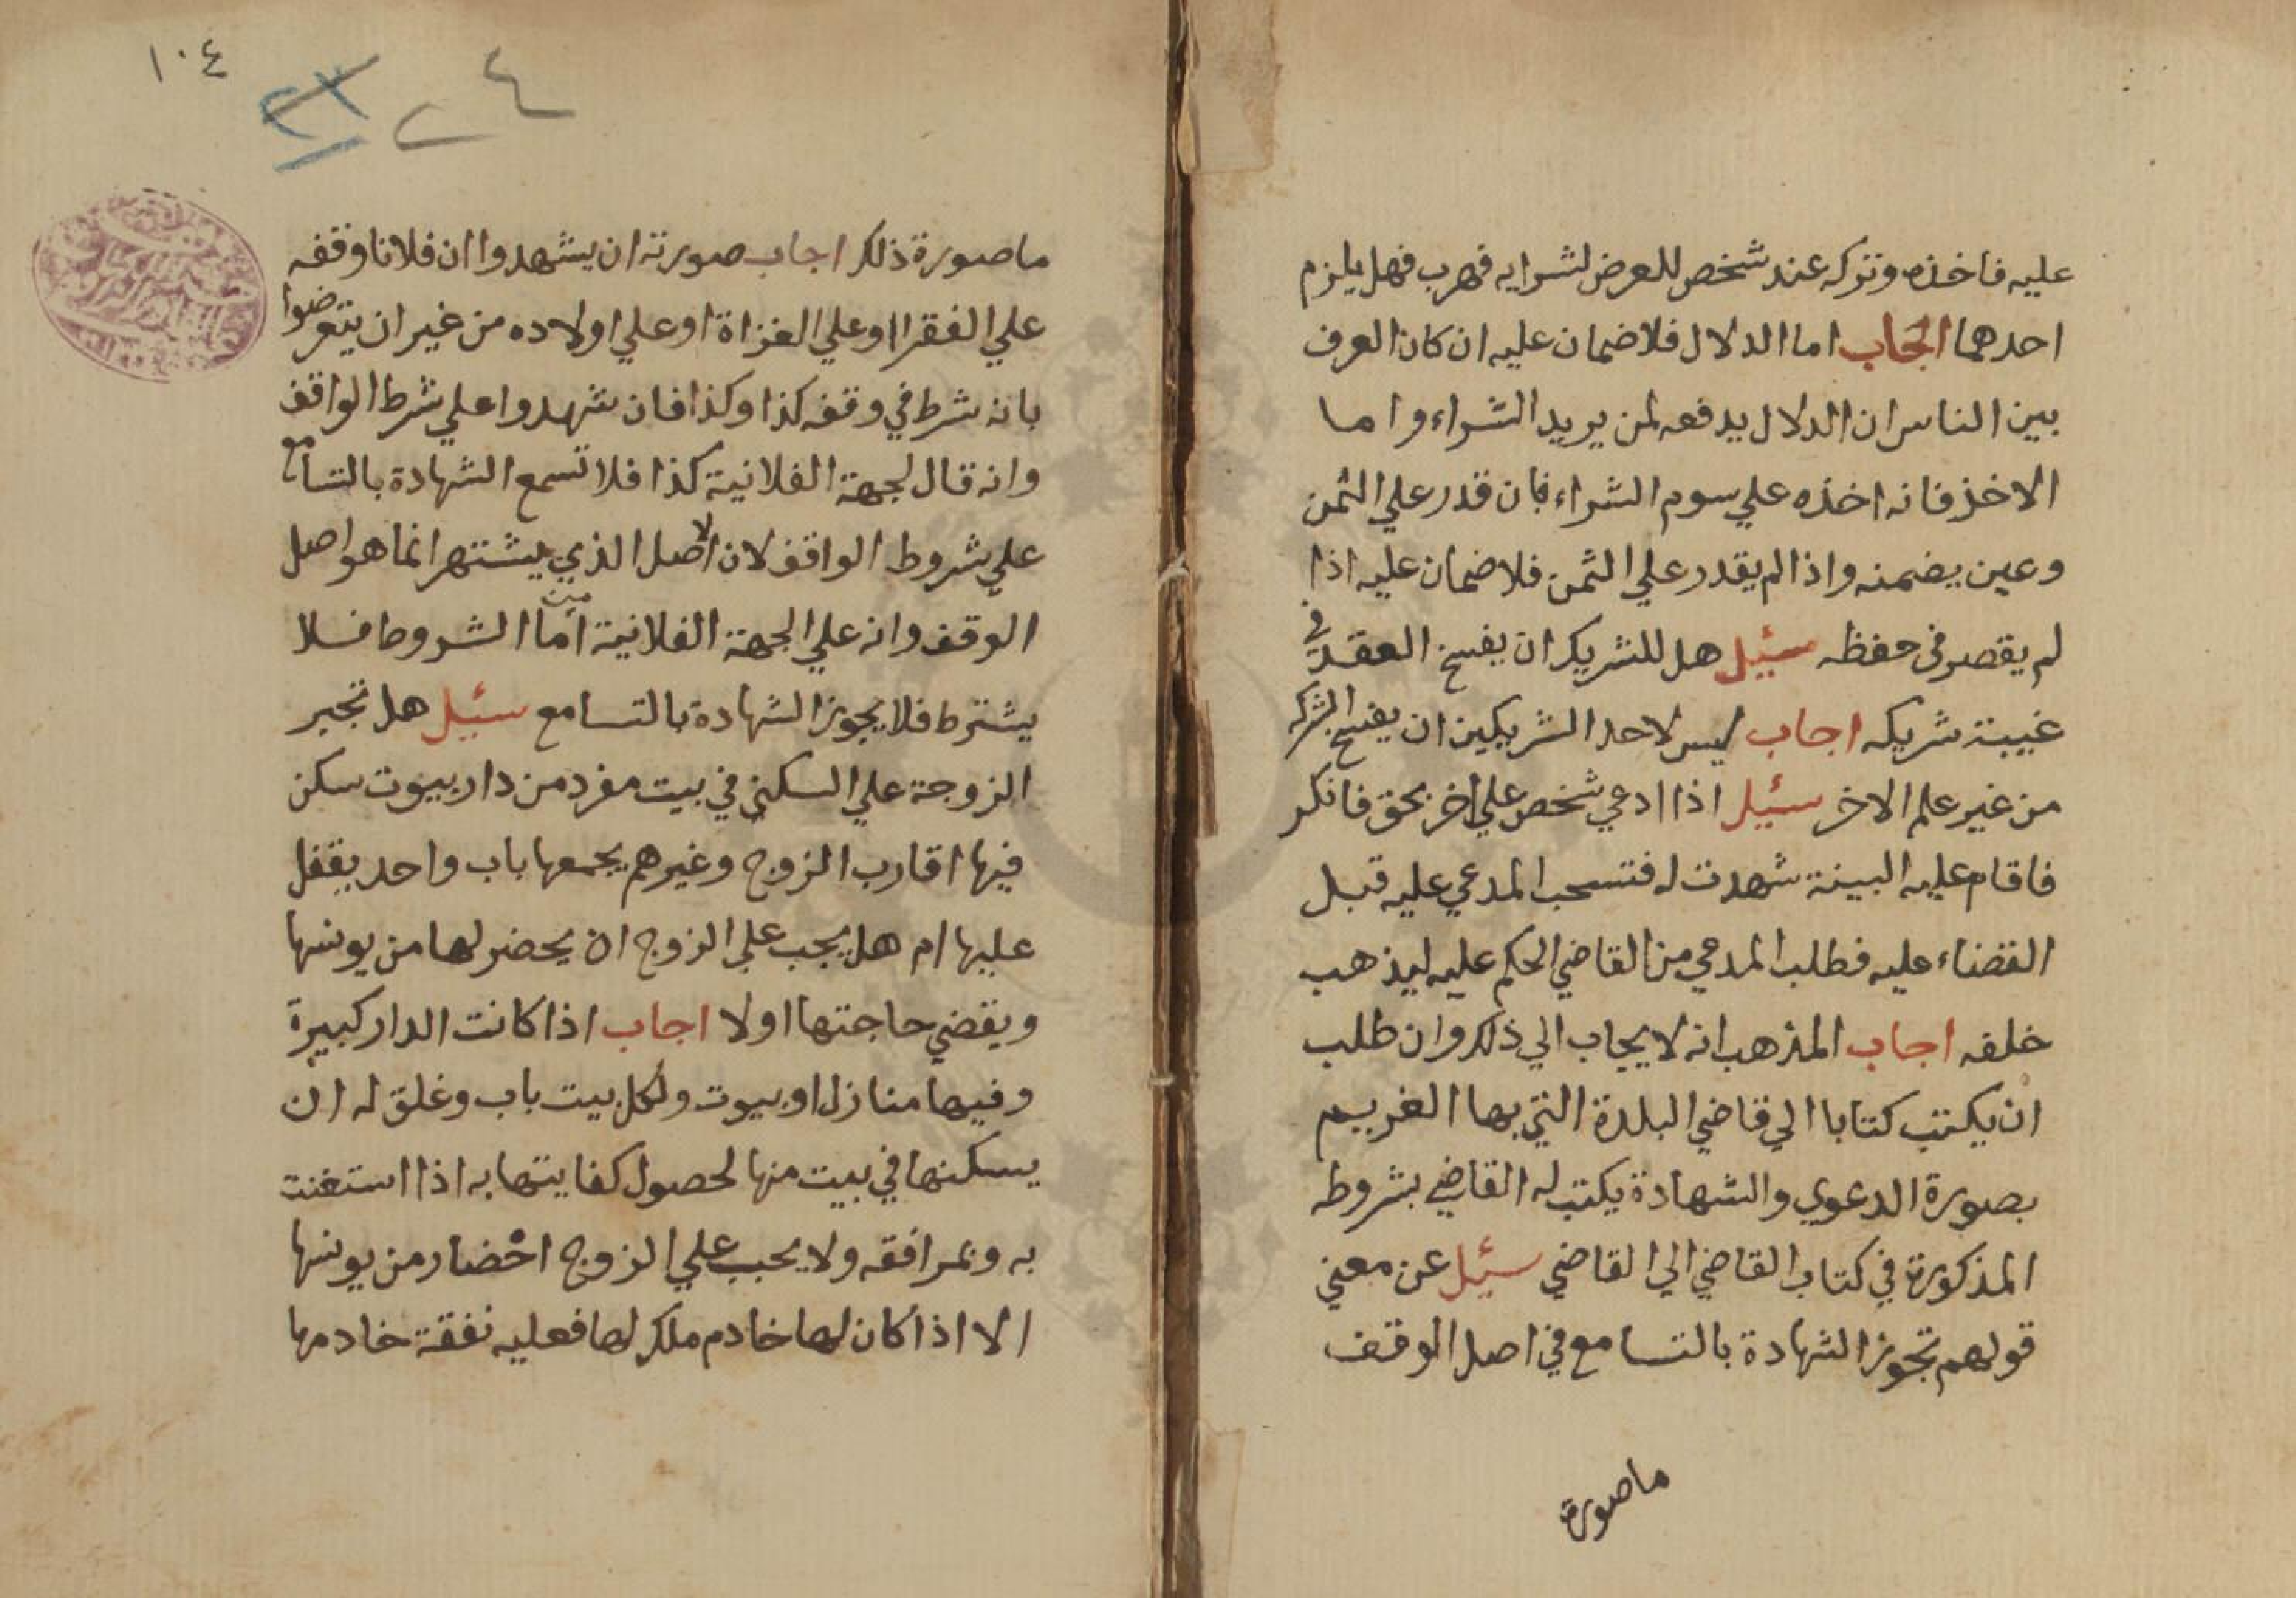 عليه فاخذه وتركه عند شخص للعرض لشرايه فهرب فهل يلزم
احدهما اجاب اما الدلال فلا ضمان عليه ان كان العرف
بين الناس ان الدلال يدفعه لمن يريد الشراء واما
الاخذ فانه اخذه علي سوم الشراء فان قدر علي الثمن
وعين يضمنه واذا لم يقدر علي الثمن فلا ضمان عليه اذا
لم يقصر في حفظه سئيل هل للشريك ان يفسخ العقد في
غيبة شريكه اجاب ليس لاحد الشريكين ان يفسخ الشركه
من غير علم الاخر سئيل اذا ادعي شخص علي اخر بحق فانكر
فاقام عليه البينة شهدت له فتسحب المدعي عليه قبل
القضاء عليه فطلب المدعي من القاضي الحكم عليه ليذهب
خلفه اجاب المذهب انه لا يجاب الي ذلك وان طلب
ان يكتب كتابا الي قاضي البلدة التي بها الغريم
بصورة الدعوي والشهادة يكتب له القاضي بشروطه
المذكورة في كتاب القاضي الي القاضي سئيل عن معني
قولهم تجوز الشهادة بالتسامع في اصل الوقف
ما صورة
١٠٤
٢٤
ما صورة ذلك اجاب صورته ان يشهدوا ان فلانا وقفه
علي الفقرا او علي الغزاة او علي اولاده من غير ان يتعرضوا
بانه شرط في وقفه كذا وكذا فان شهدوا علي شرط الواقف
وانه قال لجهة الفلانية كذا فلا تسمع الشهادة بالتسامع
علي شروط الواقف لان الاصل الذي يشتهر انما هو اصل
الوقف وانه علي الجهة الفلانية اما من الشروط فلا
يشترط فلا يجوز الشهادة بالتسامع سئيل هل تجبر
الزوجة علي السكني في بيت مفرد من دار بيوت سكن
فيها اقارب الزوج وغيرهم يجمعها باب واحد يقفل
عليها ام هل يجب علي الزوج ان يحضر لها من يونسها
ويقضي حاجتها اولا اجاب اذا كانت الدار كبيرة
وفيها منازل او بيوت ولكل بيت باب وغلق له ان
يسكنها في بيت منها لحصول كفايتها به اذا استغنت
به وبمرافقه ولا يجب علي الزوج احضار من يونسها
الا اذا كان لها خادم ملك لها فعليه نفقة خادمها